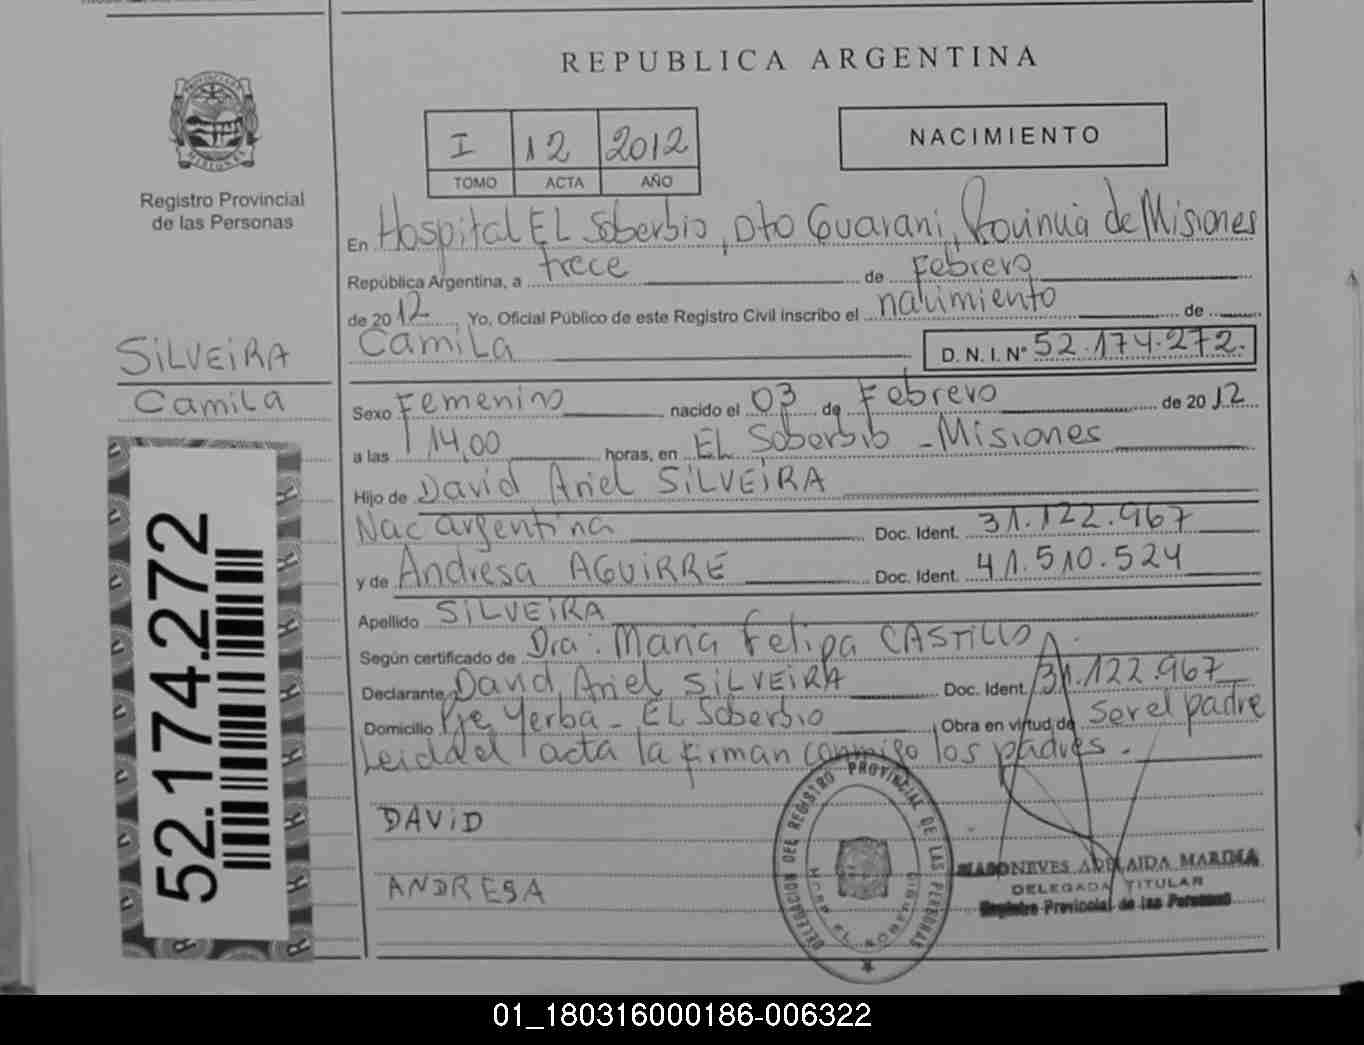 REPUBLICA ARGENTINA
I 12 2012
TOMO ACTA AÑO
NACIMIENTO
Registro Provincial
de las Personas
SILVEIRA
Camila
52.174.272
En Hospital EL Soberbio, Dto Guarani, Provincia de Misiones
República Argentina, a trece de Febrero
de 2012 Yo, Oficial Público de este Registro Civil inscribo el nacimiento de
Camila D. N. I. Nº 52.174.272.
Sexo Femenino nacido el 03 de Febrero de 2012
a las 14,00 horas, en EL Soberbio - Misiones
Hijo de David Ariel SILVEIRA
Nac argentina Doc. Ident. 31.122.967
y de Andresa AGUIRRE Doc. Ident. 41.510.524
Apellido SILVEIRA
Según certificado de Dra: Maria Felipa CASTILLO
Declarante David Ariel SILVEIRA Doc. Ident. 31.122.967
Domicilio Pje Yerba - EL Soberbio Obra en virtud de ser el padre
Leida el acta la firman conmigo los padres.
DAVID
ANDRESA
DELEGACION DEL REGISTRO PROVINCIAL DE LAS PERSONAS
EL SOBERBIO
ADELAIDA MARINA
DELEGADA TITULAR
Registro Provincial de las Personas
01_180316000186-006322